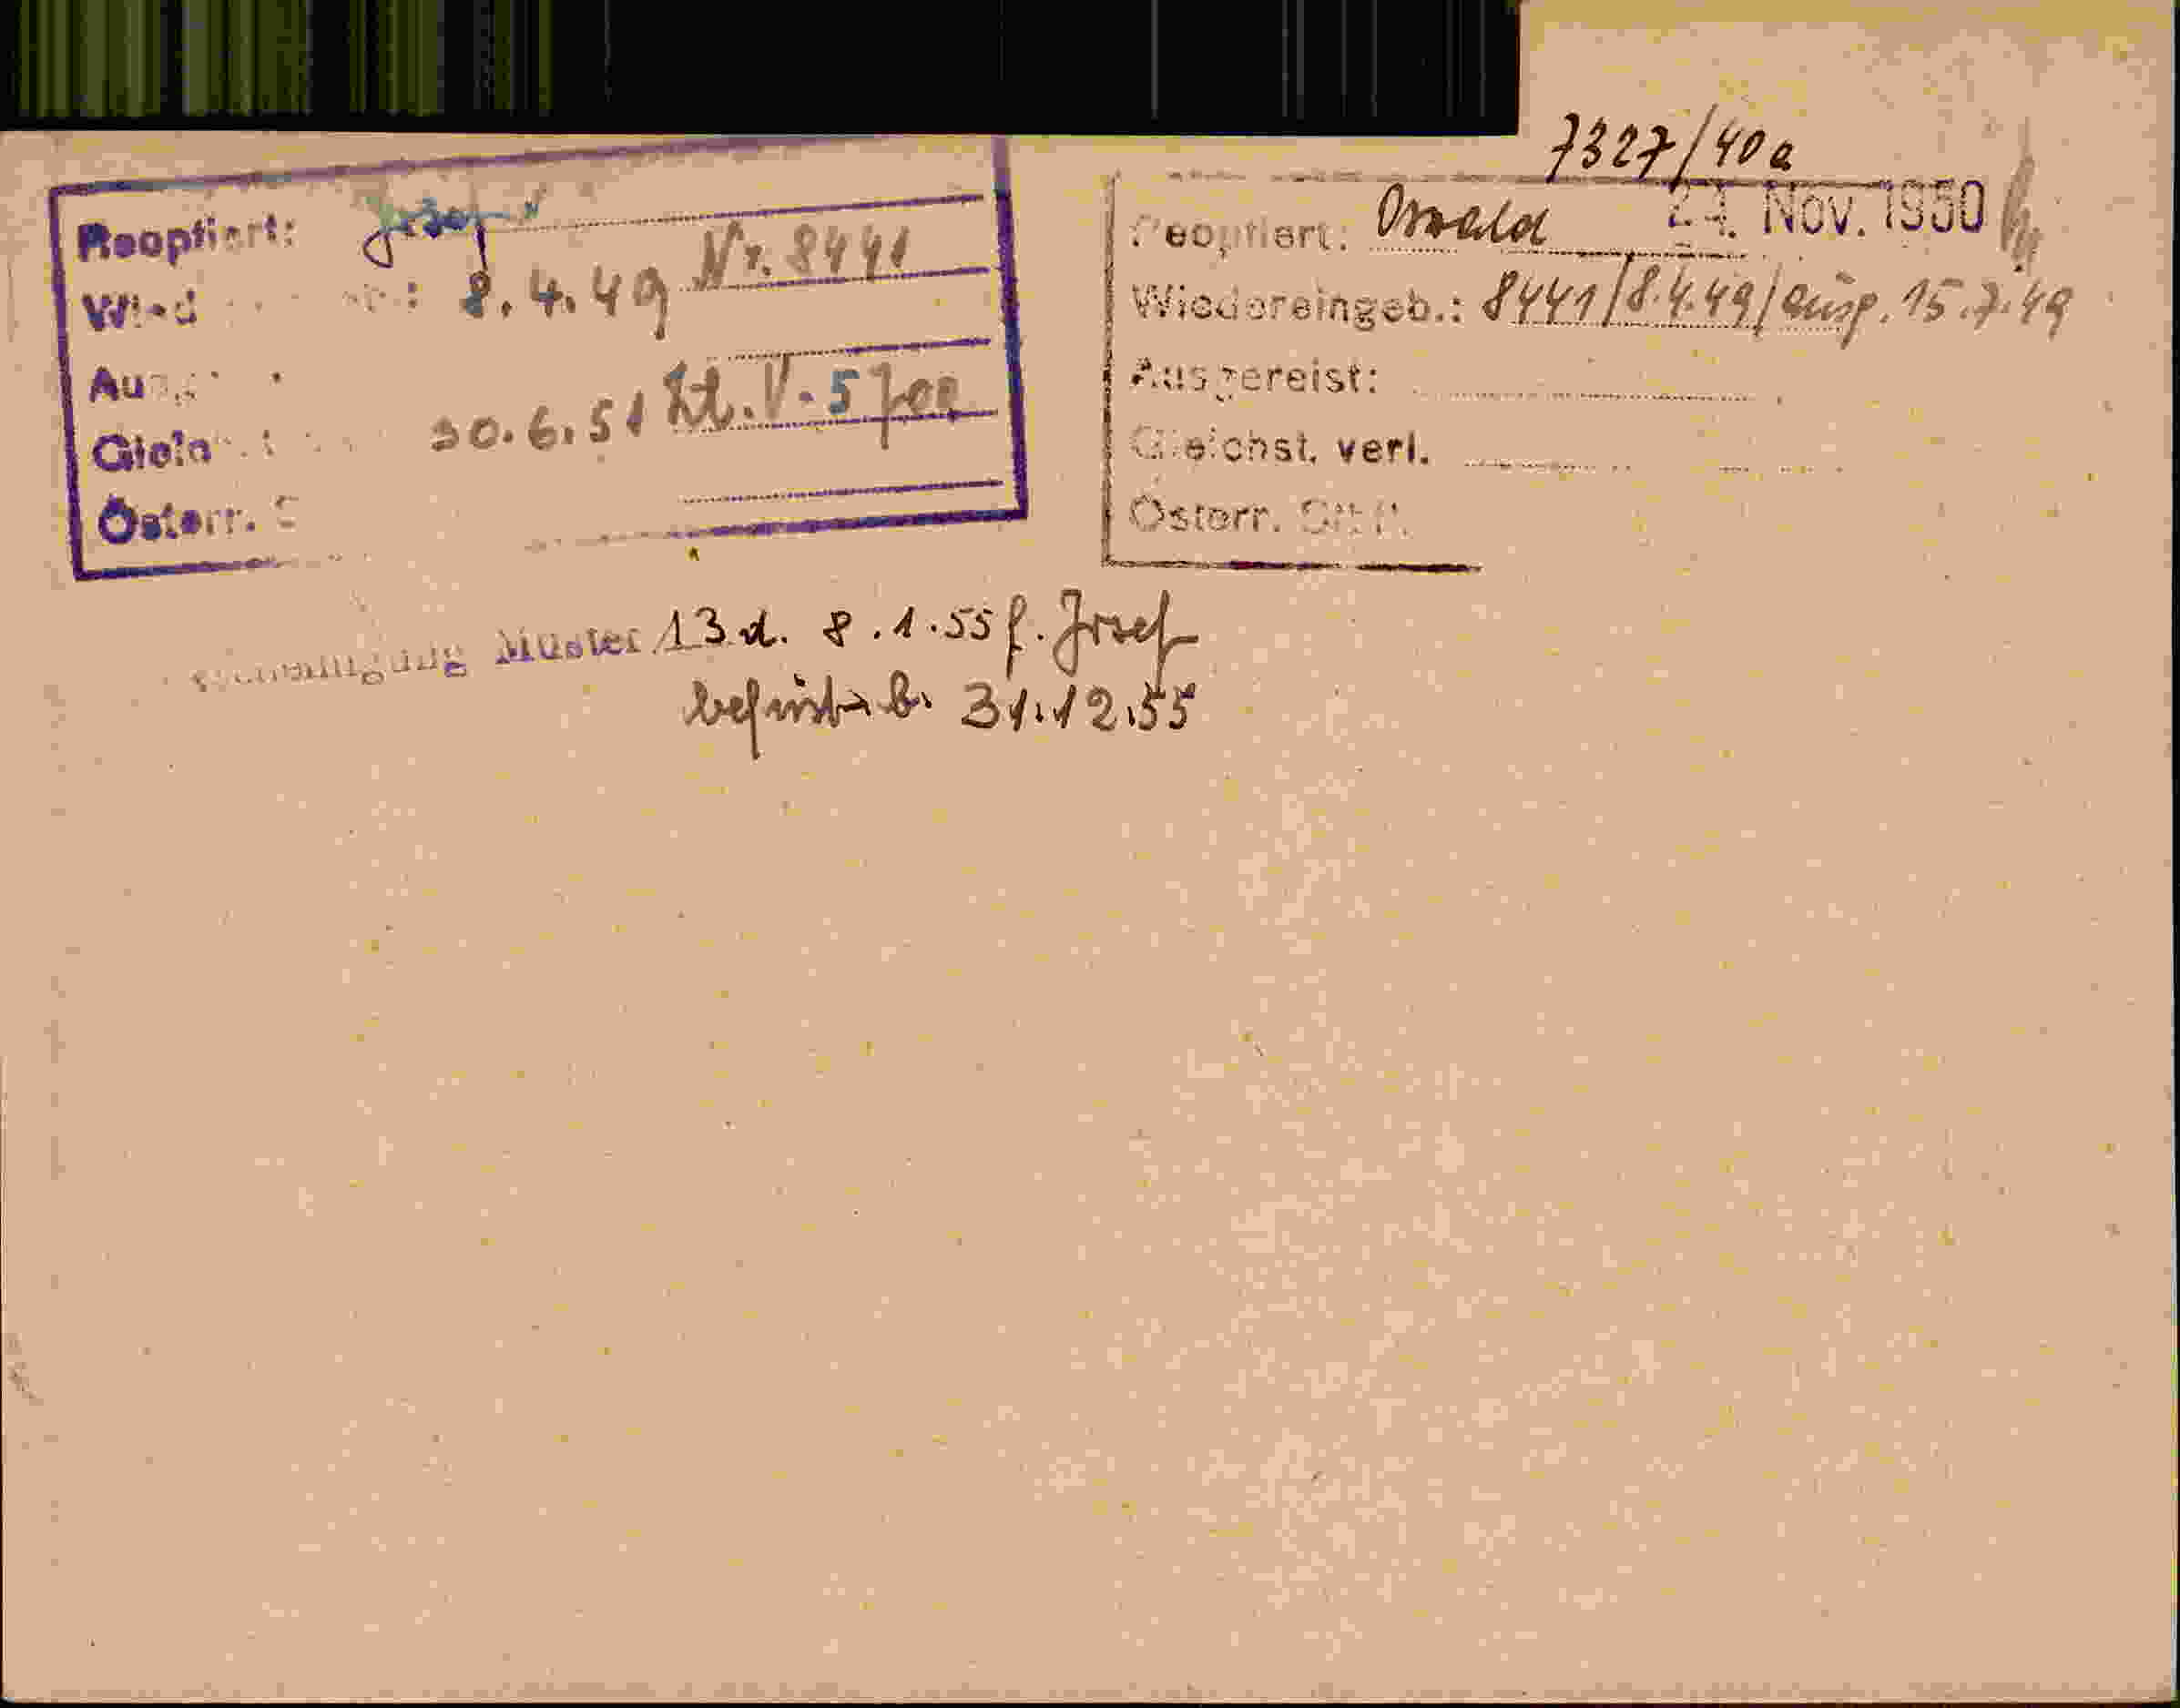 7327/40a
Reoptiert: Josef
8.4.49 Nr. 8441
30.6.51 Zl. V-5700
Österr.
Reoptiert: Oswald 24. Nov. 1950
Wiedereingeb.: 8441/8.4.49/ausg. 15.7.49
Ausgereist:
Gleichst. verl.
Österr. Stb.
Muster 13 d. 8.1.55 f. Josef
befristet b. 31.12.55